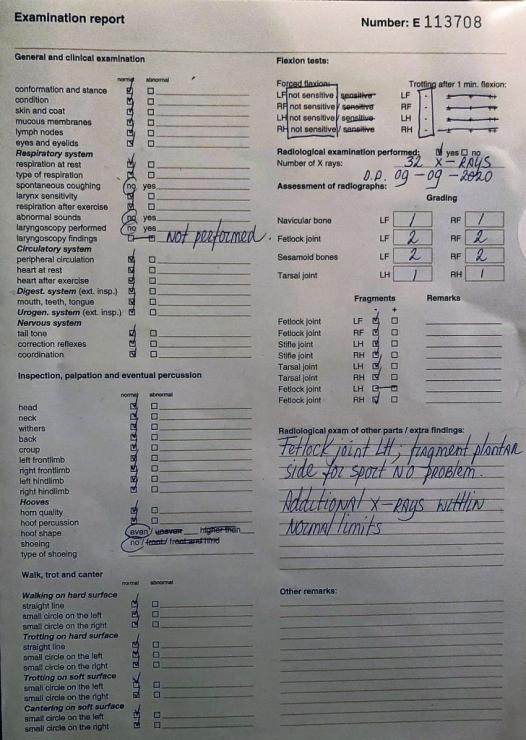 Examination report
Number: E 113708
General and clinical examination
normal abnormal
conformation and stance
condition
skin and coat
mucous membranes
lymph nodes
eyes and eyelids
Respiratory system
respiration at rest
type of respiration
spontaneous coughing no yes
larynx sensitivity
respiration after exercise
abnormal sounds no yes
laryngoscopy performed no yes
laryngoscopy findings Not performed.
Circulatory system
peripheral circulation
heart at rest
heart after exercise
Digest. system (ext. insp.)
mouth, teeth, tongue
Urogen. system (ext. insp.)
Nervous system
tail tone
correction reflexes
coordination
Inspection, palpation and eventual percussion
normal abnormal
head
neck
withers
back
croup
left frontlimb
right frontlimb
left hindlimb
right hindlimb
Hooves
horn quality
hoof percussion
hoof shape even / uneven higher than
shoeing no / front / front and hind
type of shoeing
Walk, trot and canter
normal abnormal
Walking on hard surface
straight line
small circle on the left
small circle on the right
Trotting on hard surface
straight line
small circle on the left
small circle on the right
Trotting on soft surface
small circle on the left
small circle on the right
Cantering on soft surface
small circle on the left
small circle on the right
Flexion tests:
Forced flexion: Trotting after 1 min. flexion:
LF not sensitive / sensitive LF - +
RF not sensitive / sensitive RF
LH not sensitive / sensitive LH
RH not sensitive / sensitive RH
Radiological examination performed: yes no
Number of X rays: 32 X-RAYS
O.D. 09-09-2020
Assessment of radiographs:
Grading
Navicular bone LF 1 RF 1
Fetlock joint LF 2 RF 2
Sesamoid bones LF 2 RF 2
Tarsal joint LH 1 RH 1
Fragments Remarks
- +
Fetlock joint LF
Fetlock joint RF
Stifle joint LH
Stifle joint RH
Tarsal joint LH
Tarsal joint RH
Fetlock joint LH
Fetlock joint RH
Radiological exam of other parts / extra findings:
Fetlock joint LH; fragment plantar
side for sport NO problem.
Additional X-RAYS within
Normal limits
Other remarks: